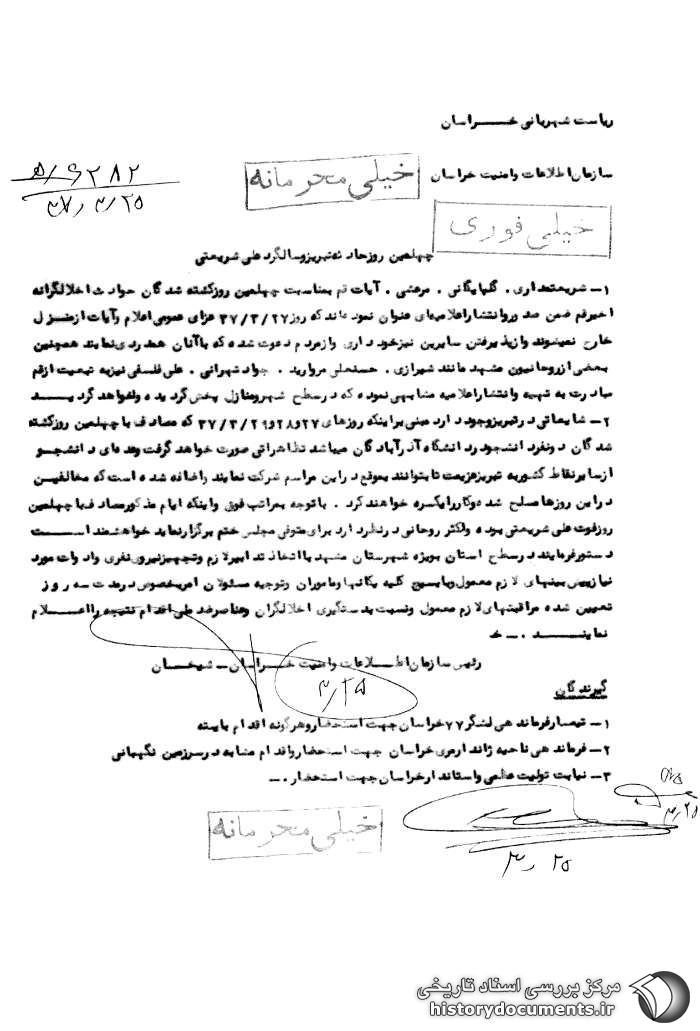 ریاست شهربانی خـــراسان
سازمان اطلاعات وامنیت خراسان
خیلی محرمانه
۲۸۲ ۶/ه
۳۷/۳/۲۵
خیلی فوری
چهلمین روزحادثه تبریزوسالگرد علی شریعتی
۱ــ شریعتمداری . گلپایگانی . مرعشی . آیات قم بمناسبت چهلمین روزکشته شدگان حوادث اخلالگرانه
اخیرقم ضمن صدوروانتشاراعلامیهای عنوان نموده‌اند که روز ۳۷/۳/۲۷ عزای عمومی اعلام وآیات ازمنزل
خارج نمیشوند وازپذیرفتن سایرین نیزخودداری وازمردم دعوت شده که باآنان همدردی نمایند همچنین
بعضی ازروحانیون مشهد مانند شیرازی . حسنعلی مروارید . جواد تهرانی . علی فلسفی نیزبه تبعیت ازقم
مبادرت به تهیه وانتشاراعلامیه مشابهی نموده که درسطح شهرومنازل پخش گردیده ولخواهد گردیـــد
۲ــ شایعاتی درتبریزوجود دارد مبنی براینکه روزهای ۲۷و۲۸و۳۷/۳/۲۹ که مصادف با چهلمین روزکشته
شدگان دونفردانشجودردانشگاه آذرآبادگان میباشد تظاهراتی صورت خواهد گرفت وعده‌ای دانشجو
ازسایرنقاط کشوربه تبریزعزیمت تابتوانند بموقع دراین مراسم شرکت نمایند واضافه شده است که مخالفین
دراین روزها مسلح شده وکاررایکسره خواهند کرد . باتوجه بمراتب فوق واینکه ایام مذکورمصادف با چهلمین
روزفوت علی شریعتی بوده ودکتر روحانی درنظردارد برای متوفی مجلس ختم برگزارنماید خواهشمند اســـت
دستورفرمایند درسطح استان بویژه شهرستان مشهد بااتخاذ تدابیرلازم وتجهیزنیروی نفری وادوات مورد
نیازپیش بینیهای لازم معمول وبابسیج کلیه یگانها وماموران وتوجیه مسئولان امربخصوص درمدت سه روز
تعیین شده مراقبتهای لازم معمول ونسبت بدستگیری اخلالگران وعناصرضد ملی اقدام نتیجه رااعــلام
نماینـــد . ــ خ
رئیس سازمان اطــلاعات وامنیت خــراسان ــ شیخــان
۳/۲۵
گیرندگان
۱ــ تیمسارفرماندهی لشگر ۷۷خراسان جهت استحضاروهرگونه اقدام بایسته
۲ــ فرماندهی ناحیه ژاندارمری خراسان جهت استحضارواقدام مشابه درسرزمین نگهبانی
۳ــ نیابت تولیت عظمی واستاندارخراسان جهت استحضار . ــ
خیلی محرمانه
۳/۲۵
۳/۲۵
مرکز بررسی اسناد تاریخی
historydocuments.ir